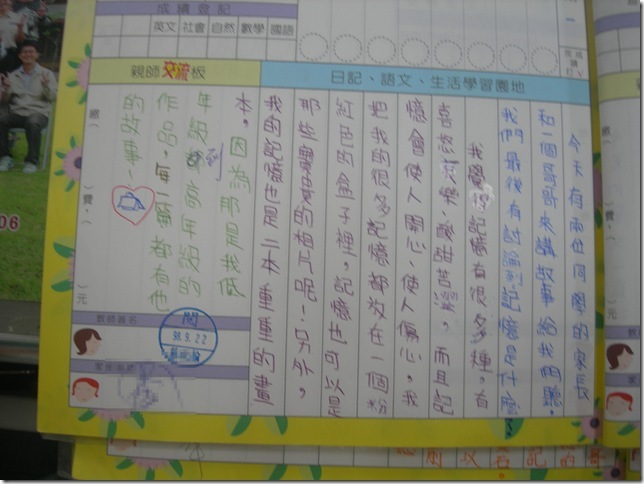 成績登記
英文 社會 自然 數學 國語
完成打√
親師交流板
日記、語文、生活學習園地
今天有兩位同學的家長
和一個哥哥來講故事給我們聽。
我們最後有討論到記憶是什麼?
我覺得記憶有很多種,有
喜怒哀樂、酸甜苦澀,而且記
憶會使人開心、使人傷心。我
把我的很多記憶都放在一個粉
紅色的盒子裡,記憶也可以是
那些舊舊的相片呢!另外,
我的記憶也是二本重重的畫
本,因為那是我低
年級到高年級的
作品,每一篇都有他
的故事、
繳( )費,( )元
教師簽名
閱
98.9.22
06